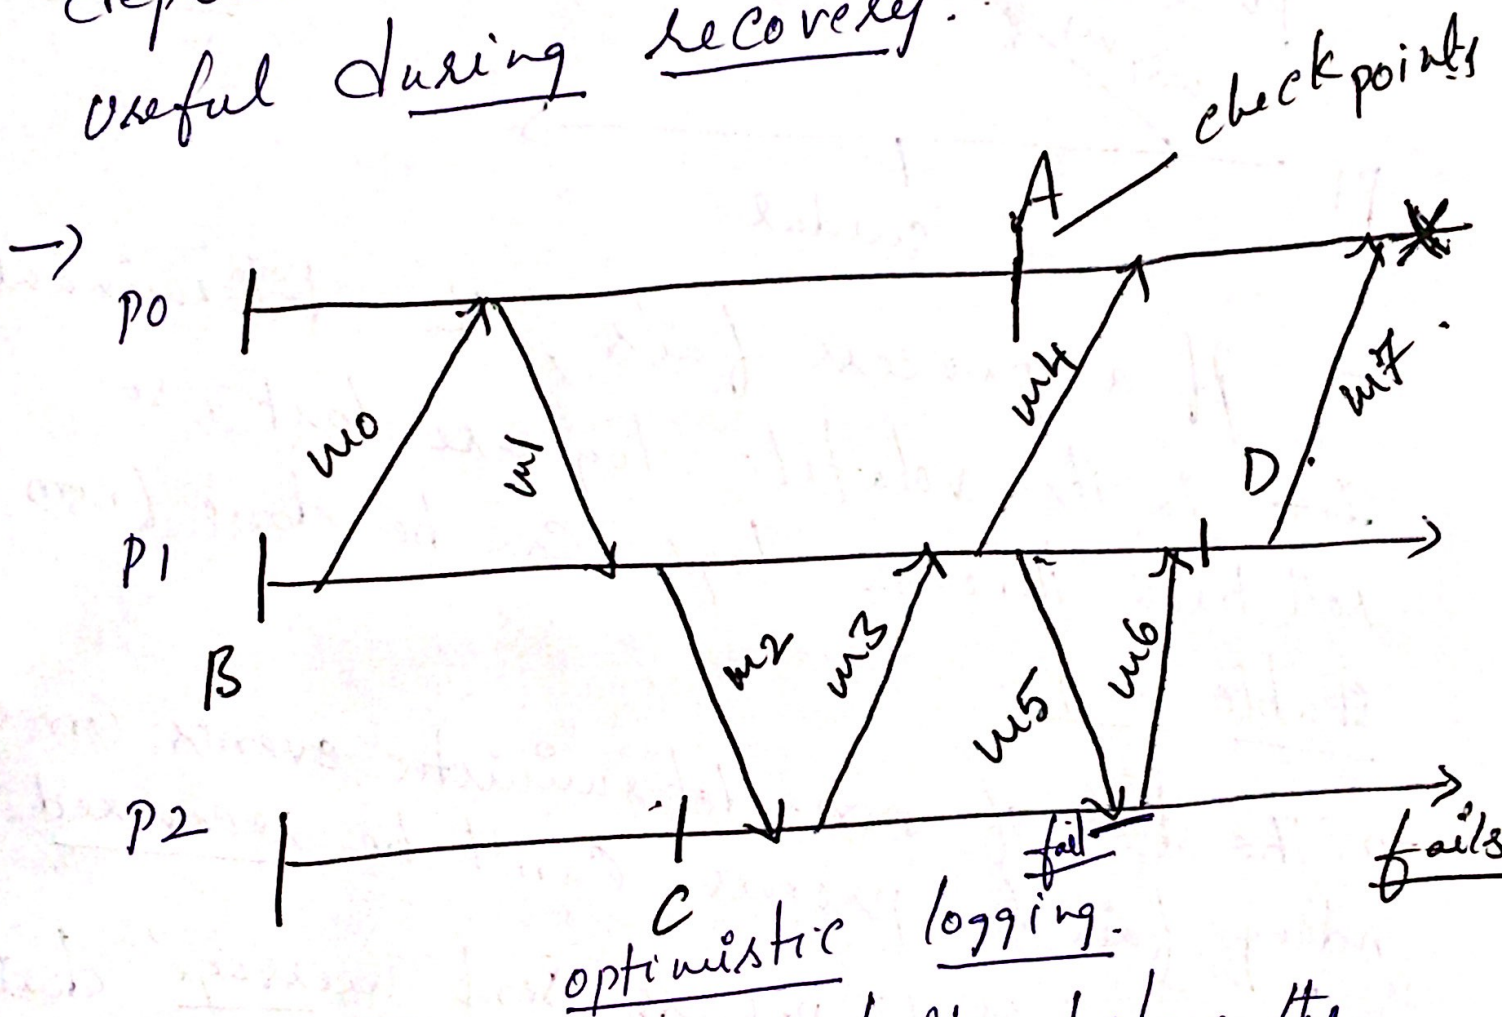 useful during recovery.
checkpoints
A
→
P0
m0
m1
m4
m7
D
P1
B
m2
m3
m5
m6
P2
C
fail
fails
optimistic logging.
the